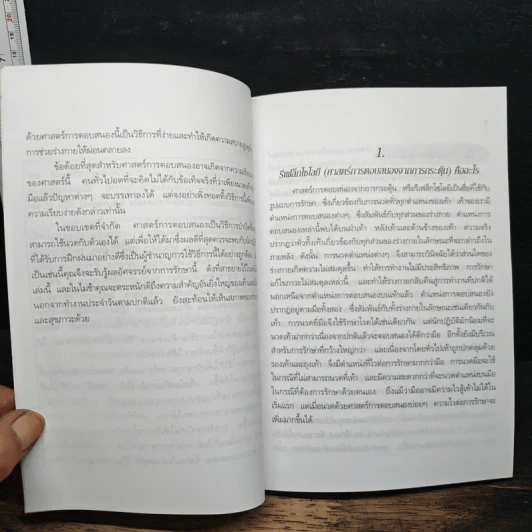 ด้วยศาสตร์การตอบสนองนี้เป็นวิธีการที่ง่ายและทำให้เกิดความสบาย
การช่วยร่างกายให้ผ่อนคลายลง
ข้อด้อยที่สุดสำหรับศาสตร์การตอบสนองอาจเกิดจากความ
ของศาสตร์นี้ คนทั่วไปอดที่จะคิดไม่ได้กับข้อเท็จจริงที่ว่าเพียง
มือแล้วปัญหาต่างๆ จะบรรเทาลงได้ แต่จงอย่าเพิ่งทอดทิ้งวิธีการนี้
ความเรียบง่ายดังกล่าวเท่านั้น
ในขอบเขตที่จำกัด ศาสตร์การตอบสนองเป็นวิธีการบำบัด
สามารถใช้นวดกับตัวเองได้ แต่เพื่อให้ได้มาซึ่งผลดีที่สุดควรจะพบกับ
ที่ได้รับการฝึกฝนมาอย่างดีซึ่งเป็นผู้ชำนาญการใช้วิธีการนี้ได้อย่างถูกต้อง
เป็นเช่นนี้คุณจึงจะรับรู้ผลอัศจรรย์จากการรักษานี้ ดังที่สาธยายไว้ใน
เล่มนี้ และในไม่ช้าคุณจะตระหนักดีถึงความสำคัญอันยิ่งใหญ่ของเท้า
นอกจากทำงานประจำวันตามปกติแล้ว ยังสะท้อนให้เห็นสภาพของ
และสุขภาวะด้วย
1.
รีเฟล็กโซโลยี (ศาสตร์การตอบสนองจากการกระตุ้น) คืออะไร
ศาสตร์การตอบสนองจากการกระตุ้น หรือรีเฟล็กโซโลยีเป็นชื่อที่ใช้กับ
รูปแบบการรักษา ซึ่งเกี่ยวข้องกับการนวดทั่วทุกตำแหน่งของเท้า เท้าของเรามี
ตำแหน่งการตอบสนองต่างๆ ซึ่งสัมพันธ์กับทุกส่วนของร่างกาย ตำแหน่งการ
ตอบสนองเหล่านี้พบได้บนฝ่าเท้า หลังเท้าและด้านข้างของเท้า ความจริง
ปรากฏว่าตัวเท้าเกี่ยวข้องกับทุกส่วนของร่างกายในลักษณะที่จะกล่าวถึงใน
ภายหลัง ดังนั้น การนวดตำแหน่งต่างๆ จึงสามารถวินิจฉัยได้ว่าส่วนใดของ
ร่างกายเกิดความไม่สมดุลขึ้น ทำให้การทำงานไม่มีประสิทธิภาพ การรักษา
แก้ไขภาวะไม่สมดุลเหล่านี้ และทำให้ร่างกายกลับคืนสู่การทำงานที่ปกติได้
นอกเหนือจากตำแหน่งการตอบสนองบนเท้าแล้ว ตำแหน่งการตอบสนองยัง
ปรากฏอยู่ตามมือทั้งสอง ซึ่งสัมพันธ์กับทั้งร่างกายในลักษณะเช่นเดียวกันกับ
เท้า การนวดที่มือจึงใช้รักษาโรคได้เช่นเดียวกัน แต่นักปฏิบัติมักนิยมที่จะ
นวดเท้ามากกว่าเนื่องจากปกติแล้วจะตอบสนองได้ดีกว่ามือ อีกทั้งยังมีบริเวณ
สำหรับการรักษาที่กว้างใหญ่กว่า และเนื่องจากโดยทั่วไปเท้าถูกปกคลุมด้วย
รองเท้าและถุงเท้า จึงมีตำแหน่งที่ไวต่อการรักษามากกว่ามือ การนวดมือจะใช้
ในกรณีที่ไม่สามารถนวดที่เท้า และมีความสะดวกกว่าที่จะนวดตำแหน่งบนมือ
ในกรณีที่ต้องการรักษาด้วยตนเอง ถึงแม้ว่ามืออาจมีความไวสู้เท้าไม่ได้ใน
เริ่มแรก แต่เมื่อนวดด้วยศาสตร์การตอบสนองบ่อยๆ ความไวต่อการรักษาจะ
เพิ่มมากขึ้นได้